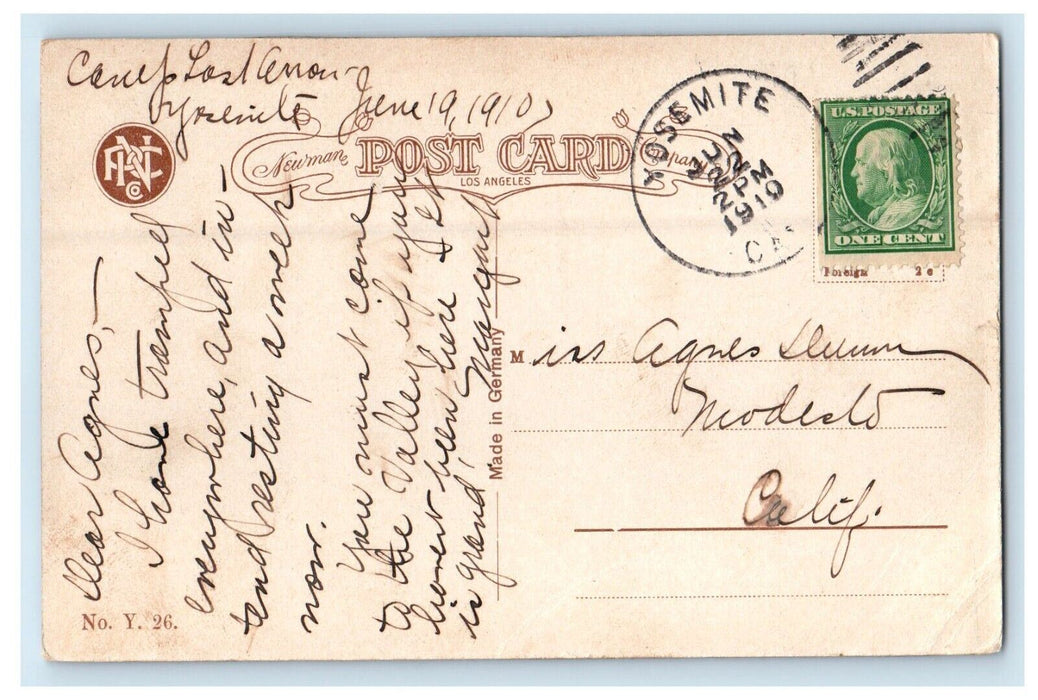 Camp Lost Arrow
Yosemite June 19, 1910
Newman POST CARD Company
LOS ANGELES
Dear Agnes,—
I have tramped
everywhere, and in-
tend resting a week
now.
You must come
to the Valley if you
haven't been here. It
is grand. Margaret
Made in Germany
No. Y. 26.
YOSEMITE
JUN
2 PM
1910
CAL.
U.S. POSTAGE
ONE CENT
Foreign 2c
Miss Agnes
Modesto
Calif.